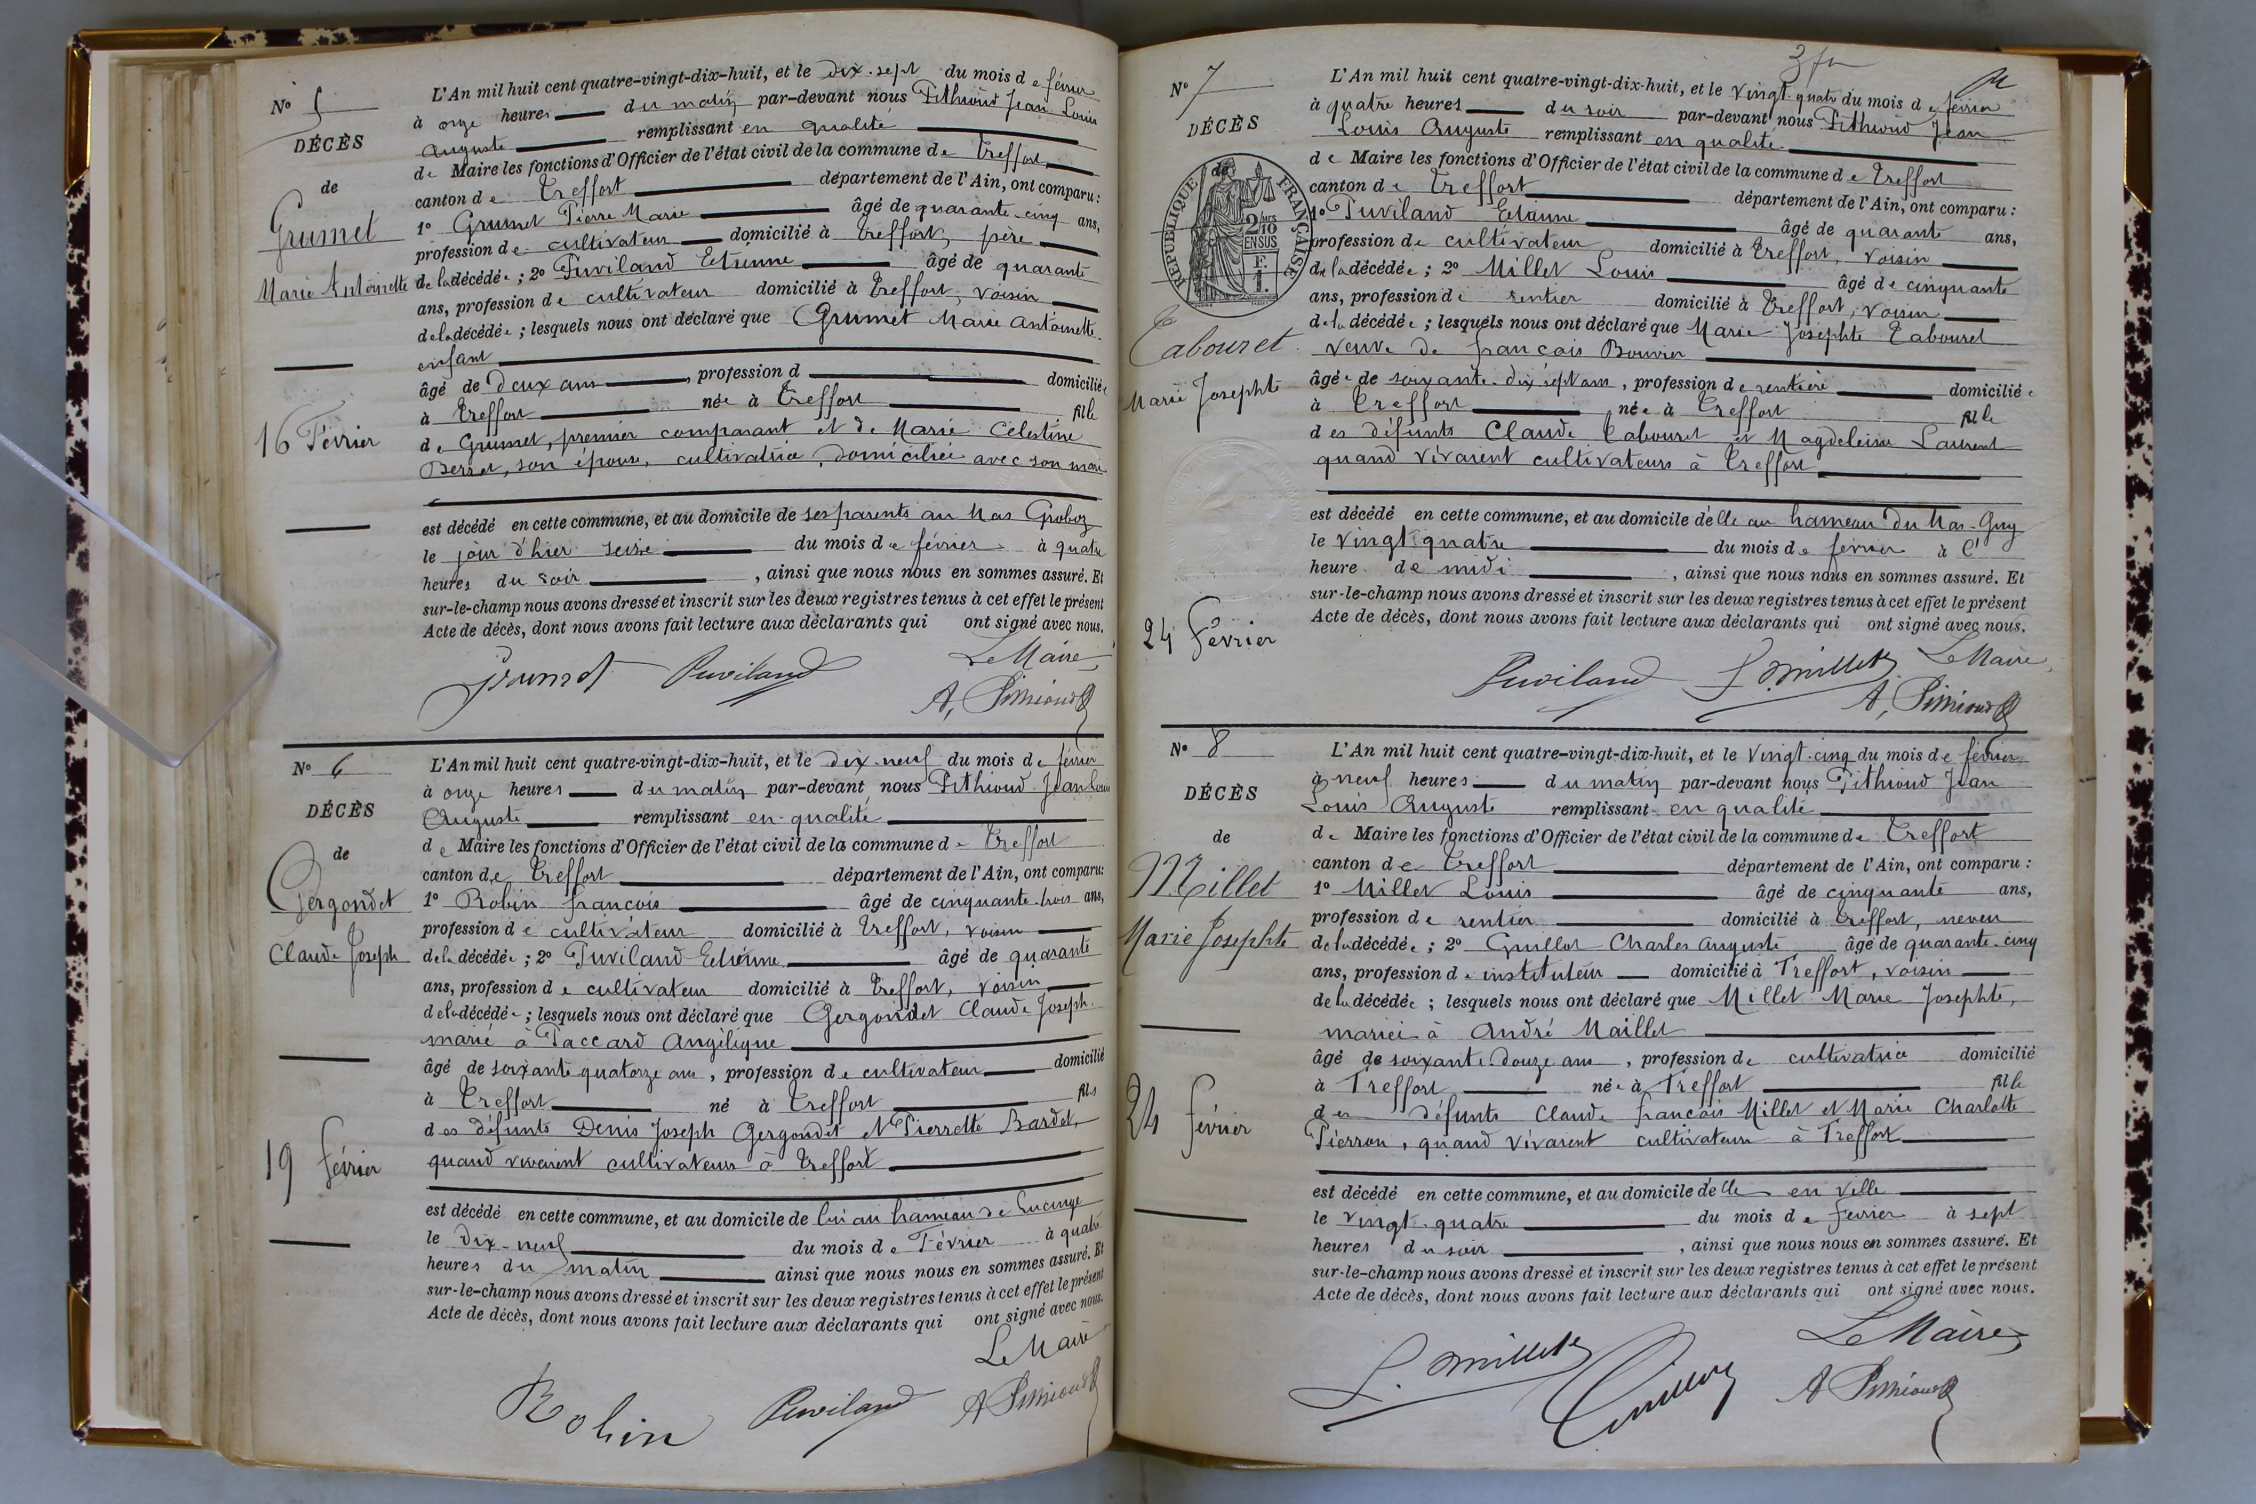 N° 5
DÉCÈS
de
Grumet
Marie Antoinette
16 Février
L'An mil huit cent quatre-vingt-dix-huit, et le dix-sept du mois de février
à onze heures du matin par-devant nous Pithioud Jean Louis
Auguste remplissant en qualité
de Maire les fonctions d'Officier de l'état civil de la commune de Treffort
canton de Treffort département de l'Ain, ont comparu :
1° Grumet Pierre Marie âgé de quarante-cinq ans,
profession de cultivateur domicilié à Treffort, père
de la décédée ; 2° Puviland Etienne âgé de quarante
ans, profession de cultivateur domicilié à Treffort, voisin
de la décédée ; lesquels nous ont déclaré que Grumet Marie Antoinette
enfant
âgé de deux ans, profession d domiciliée
à Treffort née à Treffort fille
de Grumet, premier comparant et de Marie Célestine
son épouse, cultivatrice, domiciliée avec son mari
est décédé en cette commune, et au domicile de ses parents au Mas Groboz
le jour d'hier seize du mois de février à quatre
heures du soir, ainsi que nous nous en sommes assuré. Et
sur-le-champ nous avons dressé et inscrit sur les deux registres tenus à cet effet le présent
Acte de décès, dont nous avons fait lecture aux déclarants qui ont signé avec nous.
Le Maire
Grumet Puviland A. Pithioud
N° 6
DÉCÈS
de
Gergondet
Claude Joseph
19 février
L'An mil huit cent quatre-vingt-dix-huit, et le dix-neuf du mois de février
à onze heures du matin par-devant nous Pithioud Jean Louis
Auguste remplissant en qualité
de Maire les fonctions d'Officier de l'état civil de la commune de Treffort
canton de Treffort département de l'Ain, ont comparu:
1° Robin françois âgé de cinquante-trois ans,
profession de cultivateur domicilié à Treffort, voisin
de la décédée ; 2° Puviland Etienne âgé de quarante
ans, profession de cultivateur domicilié à Treffort, voisin
de la décédée ; lesquels nous ont déclaré que Gergondet Claude Joseph
marié à Paccard Angélique
âgé de soixante quatorze ans, profession de cultivateur domicilié
à Treffort né à Treffort fils
des défunts Denis Joseph Gergondet et Pierrette Bardet,
quand vivaient cultivateurs à Treffort
est décédé en cette commune, et au domicile de lui au hameau de Lucinge
le dix-neuf du mois de Février à quatre
heures du matin ainsi que nous nous en sommes assuré. Et
sur-le-champ nous avons dressé et inscrit sur les deux registres tenus à cet effet le présent
Acte de décès, dont nous avons fait lecture aux déclarants qui ont signé avec nous.
Le Maire
Robin Puviland A Pithioud
N° 7
DÉCÈS
de
RÉPUBLIQUE FRANÇAISE
2/10 EN SUS
Tabouret
Marie Josephte
24 Février
L'An mil huit cent quatre-vingt-dix-huit, et le vingt-quatre du mois de février
à quatre heures du soir par-devant nous Pithioud Jean
Louis Auguste remplissant en qualité
de Maire les fonctions d'Officier de l'état civil de la commune de Treffort
canton de Treffort département de l'Ain, ont comparu :
1° Puviland Etienne âgé de quarante ans,
profession de cultivateur domicilié à Treffort, voisin
de la décédée ; 2° Millet Louis âgé de cinquante
ans, profession de rentier domicilié à Treffort, voisin
de la décédée ; lesquels nous ont déclaré que Marie Josephte Tabouret
veuve de françois Bouvier
âgée de soixante-dix sept ans, profession de rentière domiciliée
à Treffort née à Treffort fille
des défunts Claude Tabouret et Magdeleine Laurent
quand vivaient cultivateurs à Treffort
est décédé en cette commune, et au domicile d'elle au hameau du Mas-Guy
le vingt quatre du mois de février à l'
heure de midi, ainsi que nous nous en sommes assuré. Et
sur-le-champ nous avons dressé et inscrit sur les deux registres tenus à cet effet le présent
Acte de décès, dont nous avons fait lecture aux déclarants qui ont signé avec nous.
Le Maire
Puviland L. Millet A. Pithioud
N° 8
DÉCÈS
de
Millet
Marie Josephte
24 février
L'An mil huit cent quatre-vingt-dix-huit, et le vingt-cinq du mois de février
à neuf heures du matin par-devant nous Pithioud Jean
Louis Auguste remplissant en qualité
de Maire les fonctions d'Officier de l'état civil de la commune de Treffort
canton de Treffort département de l'Ain, ont comparu :
1° Millet Louis âgé de cinquante ans,
profession de rentier domicilié à Treffort, neveu
de la décédée ; 2° Guillot Charles Auguste âgé de quarante-cinq
ans, profession de instituteur domicilié à Treffort, voisin
de la décédée ; lesquels nous ont déclaré que Millet Marie Josephte,
mariée à André Maillet
âgé de soixante-douze ans, profession de cultivatrice domicilié
à Treffort née à Treffort fille
des défunts Claude françois Millet et Marie Charlotte
Pierron, quand vivaient cultivateurs à Treffort
est décédé en cette commune, et au domicile d'elle en ville
le vingt-quatre du mois de février à sept
heures du soir, ainsi que nous nous en sommes assuré. Et
sur-le-champ nous avons dressé et inscrit sur les deux registres tenus à cet effet le présent
Acte de décès, dont nous avons fait lecture aux déclarants qui ont signé avec nous.
Le Maire
L. Millet Guillot A Pithioud